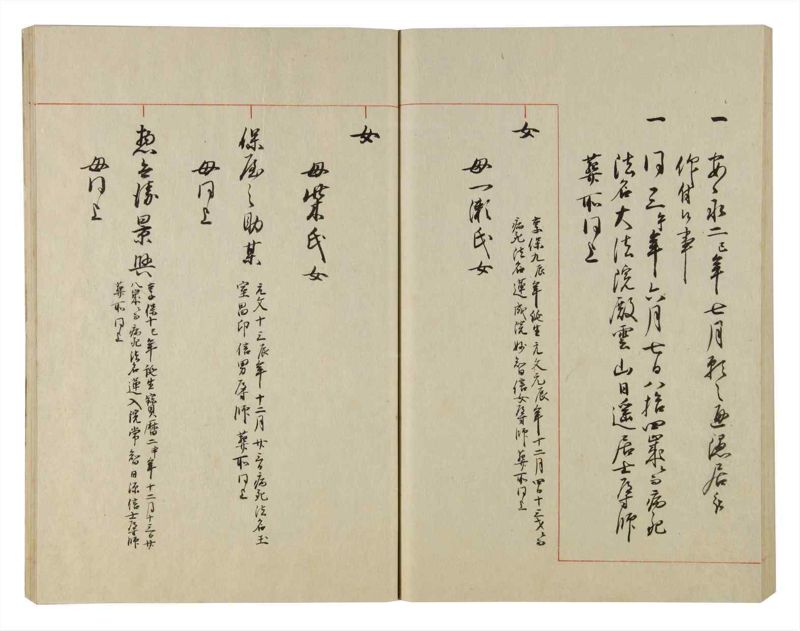 一 安永二巳年七月願之通隠居被
仰付候事
一 同三午年六月七日八拾四歳ニ而病死
法名大法院殿雲山日遥居士尊師
葬所同上
女
母一瀬氏女
享保九辰年誕生元文元辰年十二月四日十三才ニ而
病死法名蓮成院妙智信女尊師葬所同上
女
母柴氏女
保屋之助某
元文十三辰年十二月廿三日病死法名玉
室昌印信男尊師葬所同上
母同上
景興
享保十七年誕生寳暦二申年十二月十三日廿
八歳ニ而病死法名蓮入院常智日深信士尊師
葬所同上
母同上